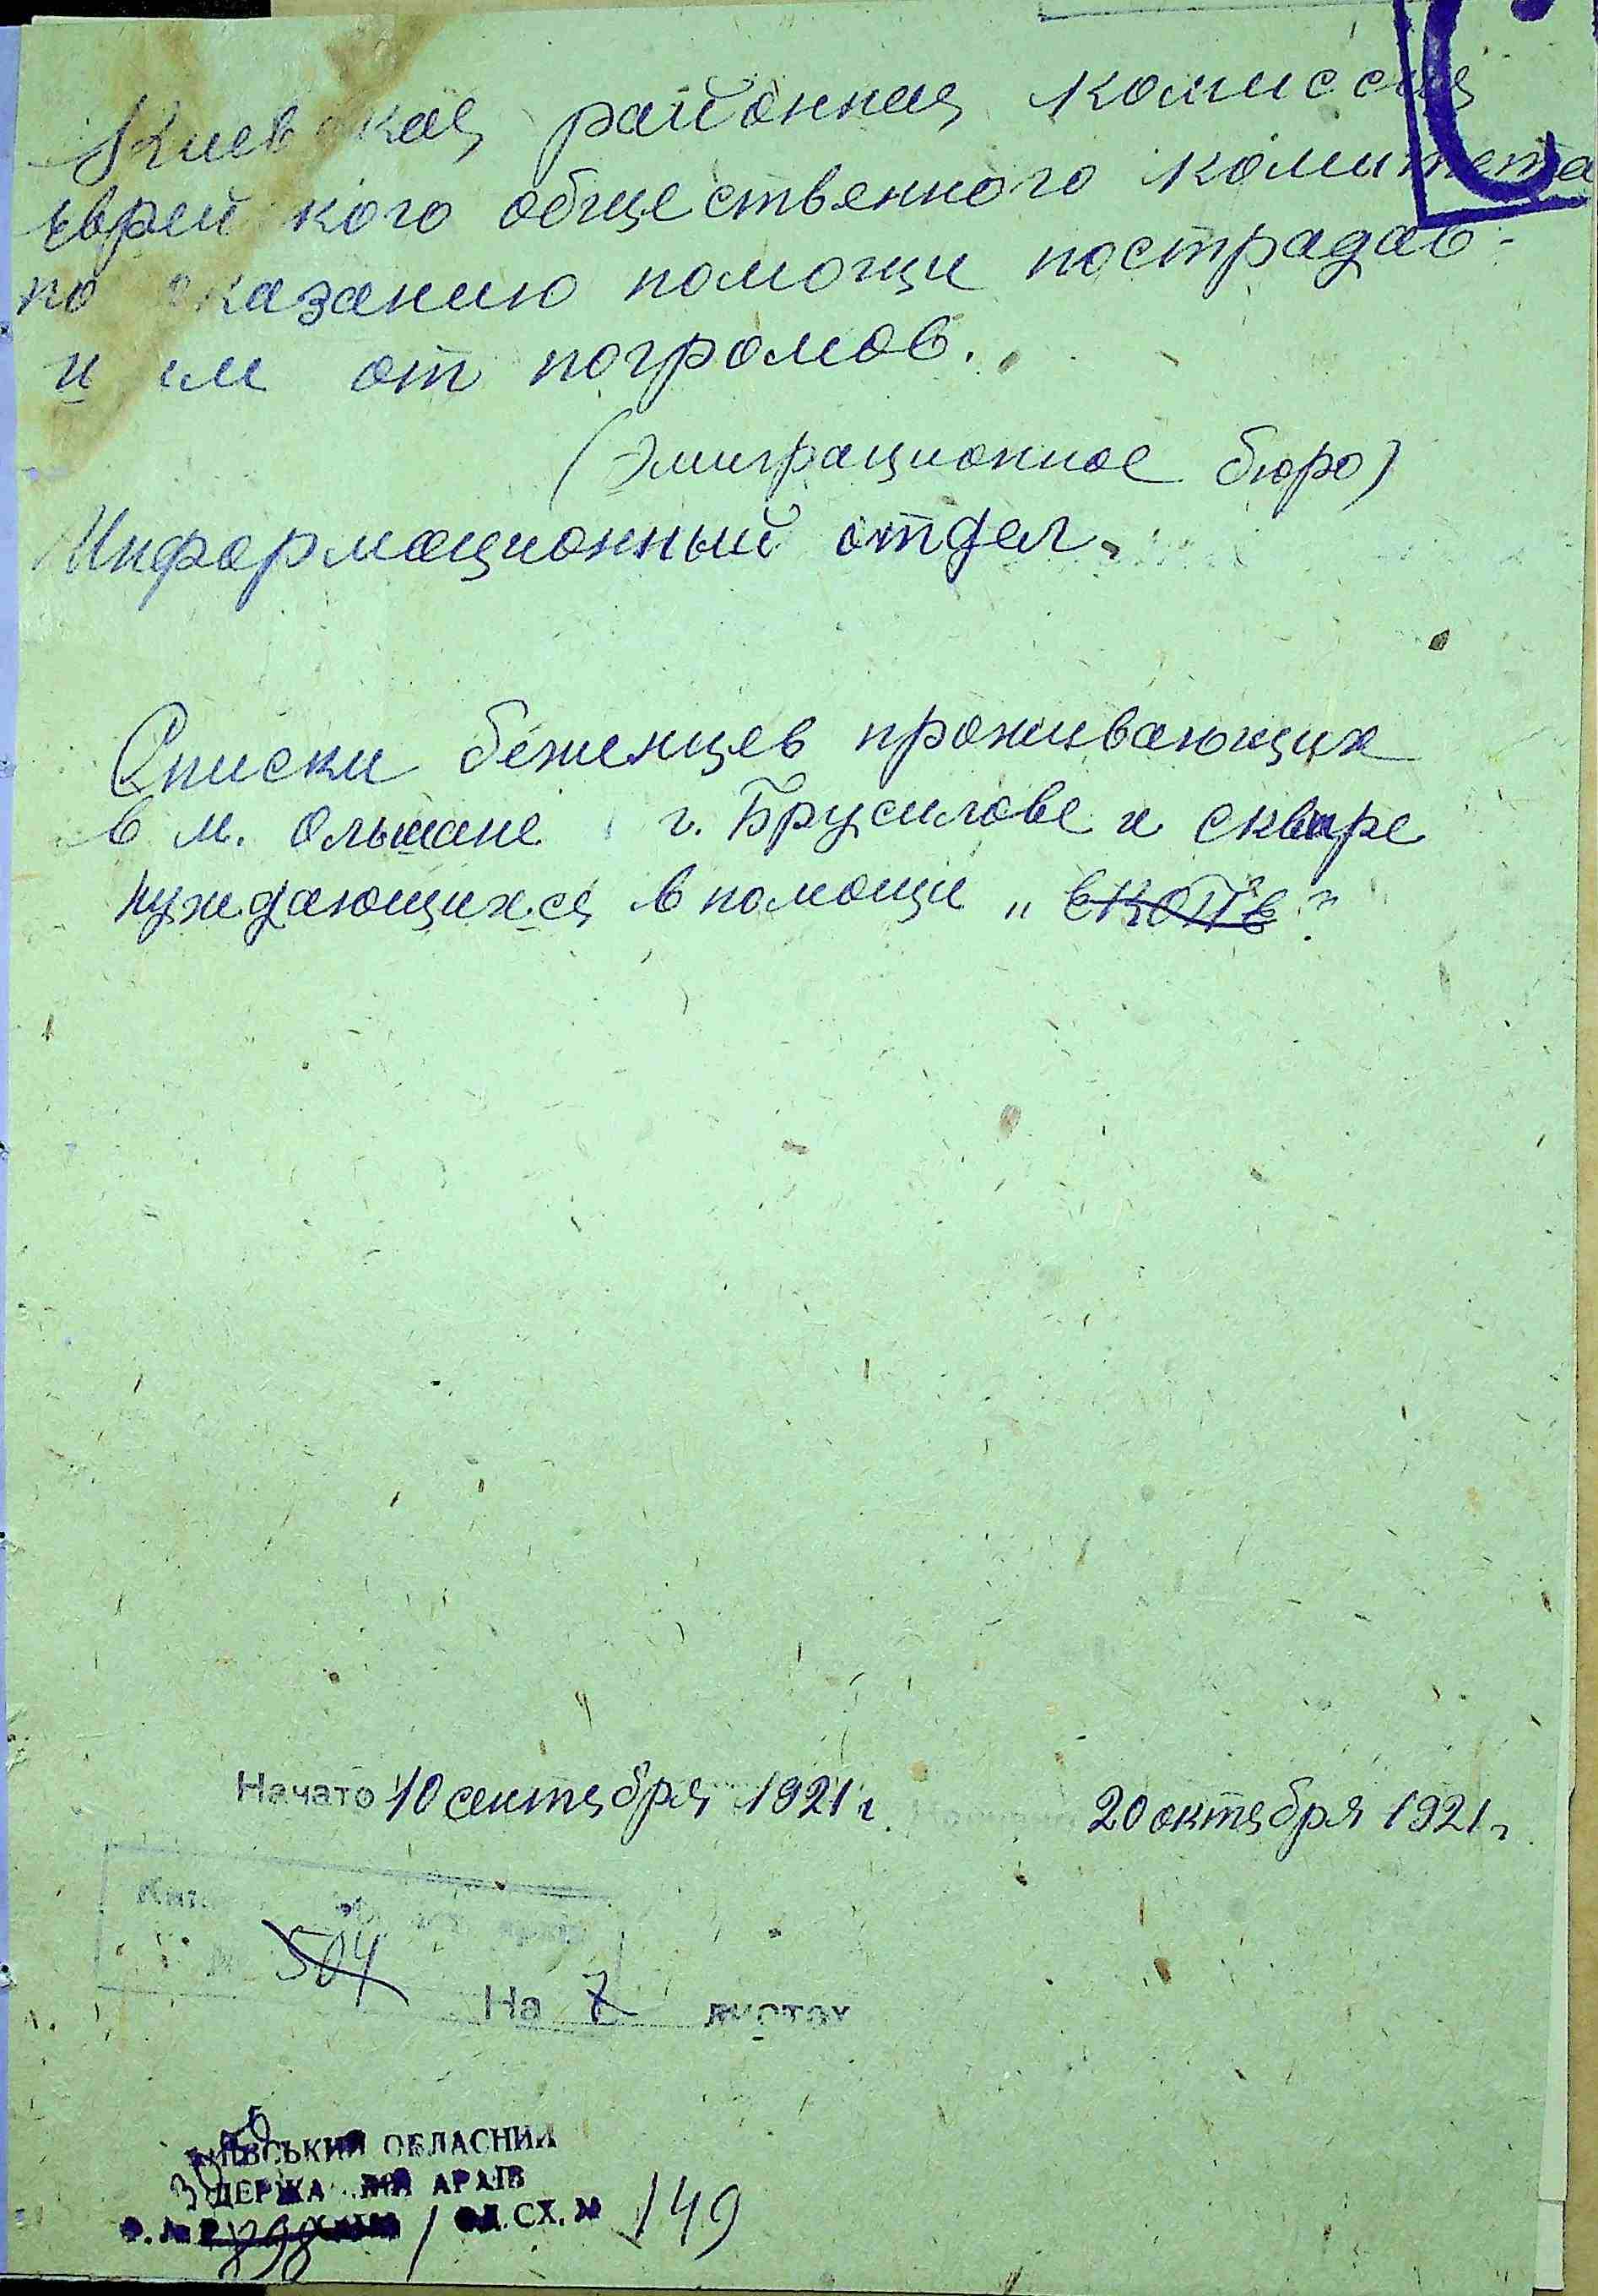 Киевская районная комиссия
еврейского общественного комитета
по оказанию помощи пострадав-
шим от погромов.
(Эмиграционное бюро)
Информационный отдел.
Списки беженцев проживающих
в м. Ольшане г. Брусилове и сквире
нуждающихся в помощи „
Начато 10 сентября 1921 г. 20 октября 1921 г.
504
На 7 листах
КИЇВСЬКИЙ ОБЛАСНИЙ
ДЕРЖАВНИЙ АРХІВ
Ф. № Р / ОД. СХ. № 149